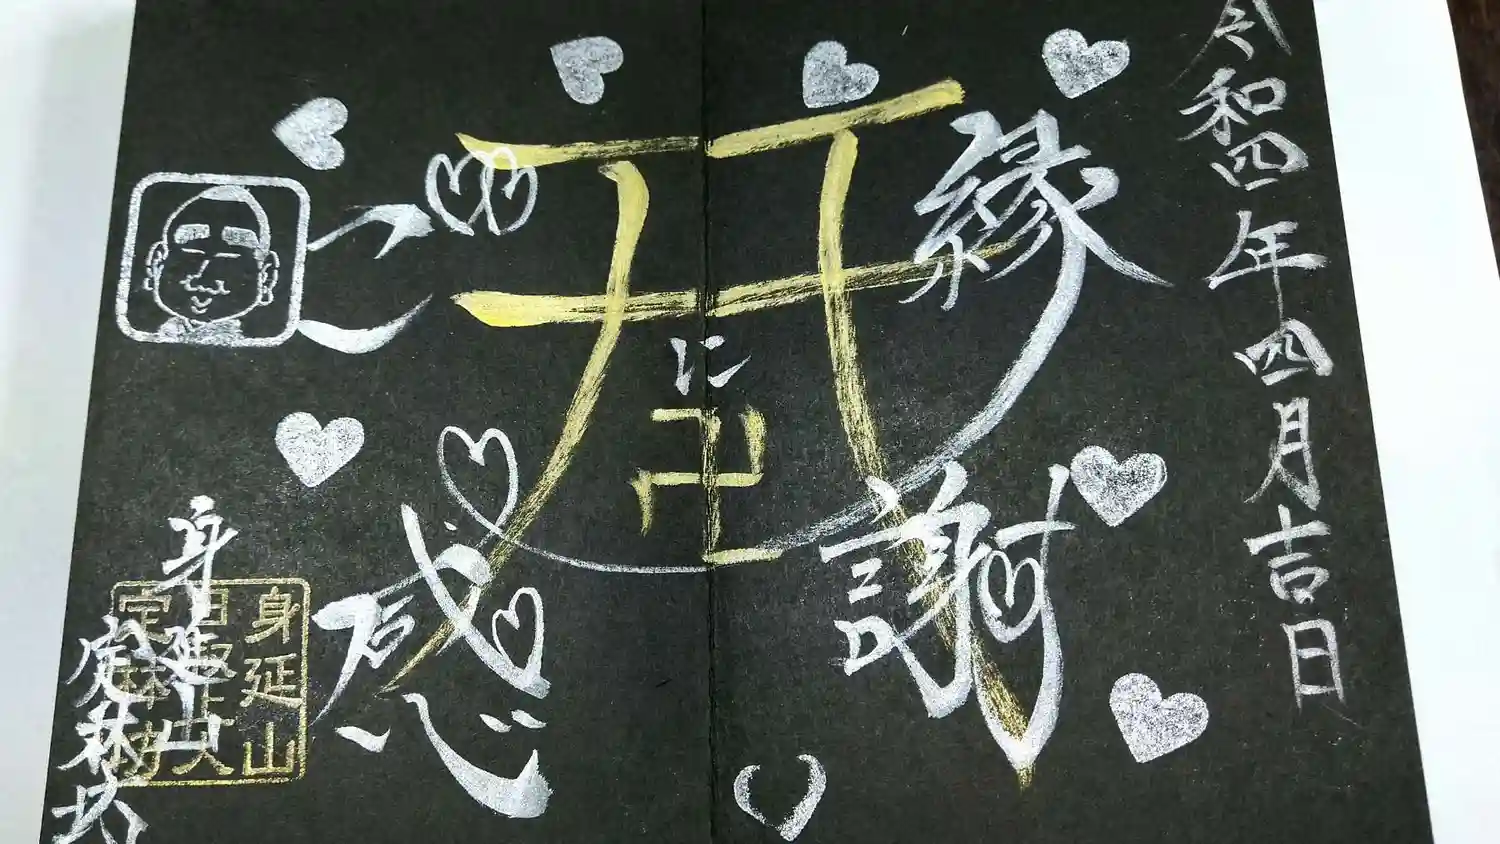 令和四年四月吉日
縁
に
卍
感謝
身延山
定林坊
身延山
定林坊